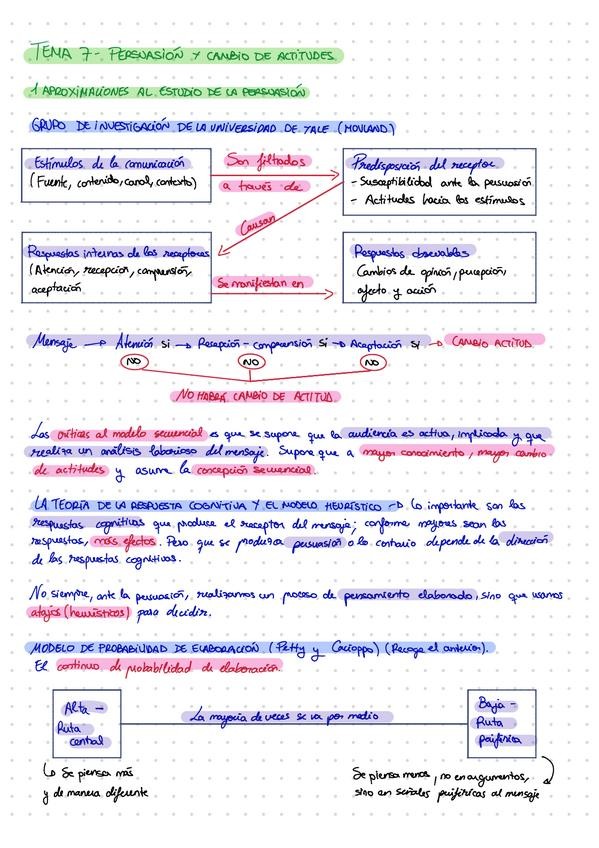 TEMA 7- PERSUASIÓN Y CAMBIO DE ACTITUDES
1 APROXIMACIONES AL ESTUDIO DE LA PERSUASIÓN
GRUPO DE INVESTIGACIÓN DE LA UNIVERSIDAD DE YALE (HOVLAND)
Estímulos de la comunicación
(Fuente, contenido, canal, contexto)
Son filtados
a través de
Predisposición del receptor
- Susceptibilidad ante la persuasión
- Actitudes hacia los estímulos
Causan
Respuestas internas de los receptores
(Atención, recepción, comprensión,
aceptación
Se manifiestan en
Respuestas observables
Cambios de opinión, percepción,
afecto y acción
Mensaje → Atención Si → Recepción - comprensión Si → Aceptación Si → CAMBIO ACTITUD
NO NO NO
NO HABRÁ CAMBIO DE ACTITUD
Las críticas al modelo secuencial es que se supone que la audiencia es activa, implicada y que
realiza un análisis laborioso del mensaje. Supone que a mayor conocimiento, mayor cambio
de actitudes y asume la concepción secuencial.
LA TEORÍA DE LA RESPUESTA COGNITIVA Y EL MODELO HEURÍSTICO → Lo importante son las
respuestas cognitivas que produce el receptor del mensaje; conforme mayores sean las
respuestas, más efectos. Pero que se produzca persuasión o lo contario depende de la dirección
de las respuestas cognitivas.
No siempre, ante la persuasión, realizamos un proceso de pensamiento elaborado, sino que usamos
atajos (heurísticos) para decidir.
MODELO DE PROBABILIDAD DE ELABORACIÓN (Petty y Cacioppo) (Recoge el anterior).
El continuo de probabilidad de elaboración.
Alta –
Ruta
central
La mayoría de veces se va por medio
Baja –
Ruta
periférica
↳ Se piensa más
y de manera diferente
Se piensa menos, no en argumentos,
sino en señales periféricas al mensaje